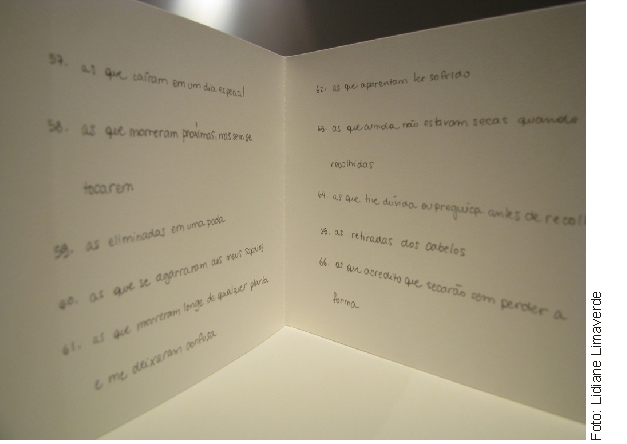 57. as que caíram em um dia especial
58. as que morreram próximas, mas sem se
tocarem
59. as eliminadas em uma poda
60. as que se agarraram aos meus sapatos
61. as que morreram longe de qualquer planta
e me deixaram confusa
62. as que aparentam ter sofrido
63. as que ainda não estavam secas quando
recolhidas
64. as que tive dúvida ou preguiça antes de recol
65. as retiradas dos cabelos
66. as que acredito que secarão sem perder a
forma
Foto: Lidiane Limaverde